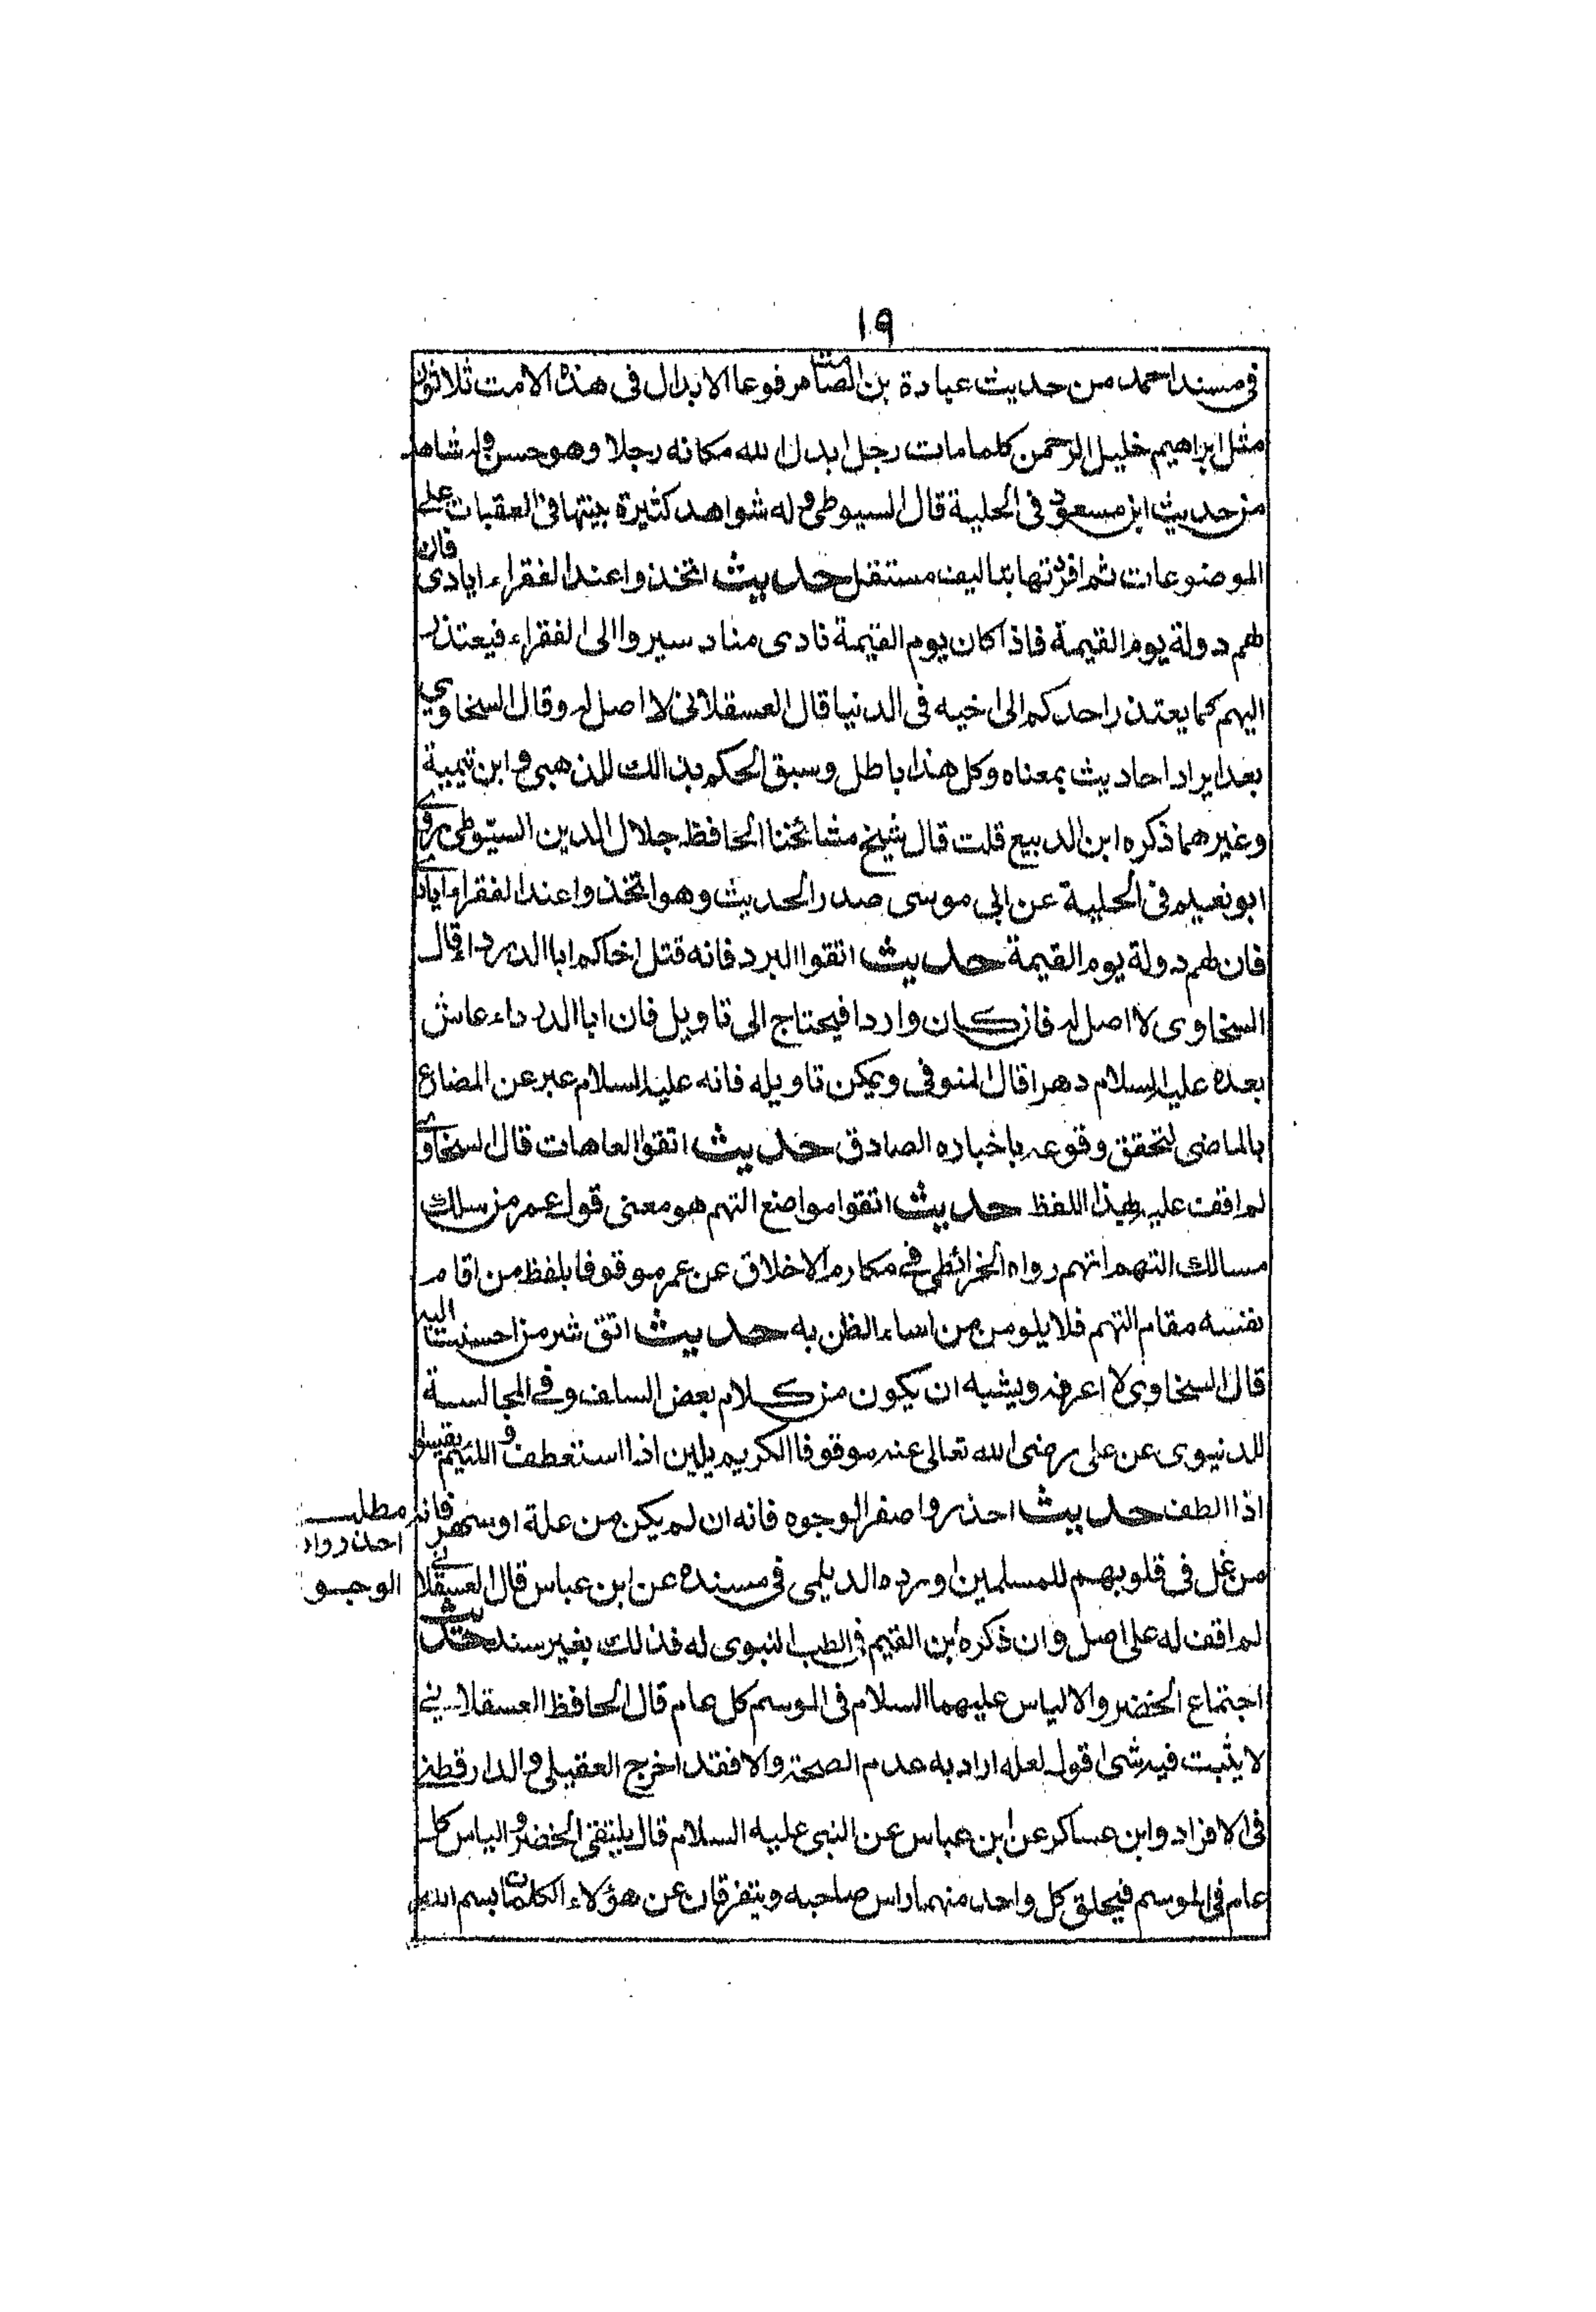 ١٩
في مسند احمد من حديث عبادة بن الصامت مرفوعا الابدال في هذه الامت ثلاثون
مثل ابراهيم خليل الرحمن كلما مات رجل ابدل الله مكانه رجلا وهو حسن وله شاهد
من حديث ابن مسعود في الحلية قال السيوطي وله شواهد كثيرة بينتها في العقبات على
الموضوعات ثم افردتها بتاليف مستقل حديث اتخذوا عند الفقراء ايادى فان
لهم دولة يوم القيمة فاذا كان يوم القيمة نادى مناد سيروا الى الفقراء فيعتذر
اليهم كما يعتذر احدكم الى اخيه في الدنيا قال العسقلاني لا اصل له وقال السخاوي
بعد ايراد احاديث بمعناه وكل هذا باطل وسبق الحكم بذالك للذهبي وابن تيمية
وغيرهما ذكره ابن الدبيع قلت قال شيخ مشائخنا الحافظ جلال الدين السيوطي روى
ابو نعيم في الحلية عن ابي موسى صدر الحديث وهو اتخذوا عند الفقراء اياد
فان لهم دولة يوم القيمة حديث اتقوا البرد فانه قتل اخاكم ابا الدرداء قال
السخاوى لا اصل له فان كان واردا فيحتاج الى تاويل فان ابا الدرداء عاش
بعده عليه السلام دهرا قال المنوفى ويمكن تاويله فانه عليه السلام عبر عن المضارع
بالماضى لتحقق وقوعه باخباره الصادق حديث اتقوا العاهات قال السخاوى
لم اقف عليه بهذا اللفظ حديث اتقوا مواضع التهم هو معنى قول عمر من سلك
مسالك التهم اتهم رواه الخرائطي في مكارم الاخلاق عن عمر موقوفا بلفظ من اقام
نفسه مقام التهم فلا يلومن من اساء الظن به حديث اتق شر من احسنت اليه
قال السخاوى لا اعرفه ويشبه ان يكون من كلام بعض السلف وفي المجالسة
للدنيوى عن على رضى الله تعالى عنه موقوفا الكريم يلين اذا استعطف و اللئيم يقسوا
اذا الطف حديث احذروا صفر الوجوه فانه ان لم يكن من علة او سهر فانه
من غل في قلوبهم للمسلمين اورده الديلمي في مسنده عن ابن عباس قال العسقلانى
لم اقف له على اصل وان ذكره ابن القيم في الطب النبوى له فذلك بغير سند حديث
اجتماع الخضر والالياس عليهما السلام في الموسم كل عام قال الحافظ العسقلاني
لا يثبت فيه شئ اقول لعله اراد به عدم الصحة والا فقد اخرج العقيلي والدارقطني
في الافراد وابن عساكر عن ابن عباس عن النبى عليه السلام قال يلتقى الخضر والياس كل
عام في الموسم فيحلق كل واحد منهما راس صاحبه ويتفرقان عن هؤلاء الكلمات بسم الله
مطلب
احذروا
الوجو